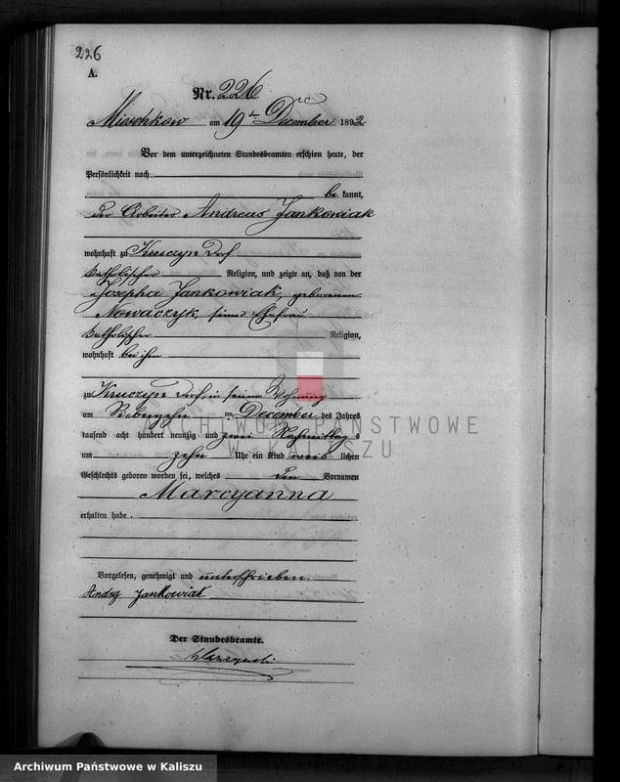 226
A.
Nr. 226
Mieschkow am 19ten December 1892
Vor dem unterzeichneten Standesbeamten erschien heute, der
Persönlichkeit nach
be kannt,
der Arbeiter Andreas Jankowiak
wohnhaft zu Kruczyn Dorf
katholischer Religion, und zeigte an, daß von der
Josepha Jankowiak, geborenen
Nowaczyk, seiner Ehefrau
katholischer Religion,
wohnhaft bei ihm
zu Kruczyn Dorf, in seiner Wohnung
am siebenzehnten December des Jahres
tausend acht hundert neunzig und zwei Nachmittags
um zehn Uhr ein Kind weib lichen
Geschlechts geboren worden sei, welches den Vornamen
Marcyanna
erhalten habe.
Vorgelesen, genehmigt und unterschrieben.
Andrzy Jankowiak
Der Standesbeamte.
ARCHIWUM PAŃSTWOWE
W KALISZU
Archiwum Państwowe w Kaliszu